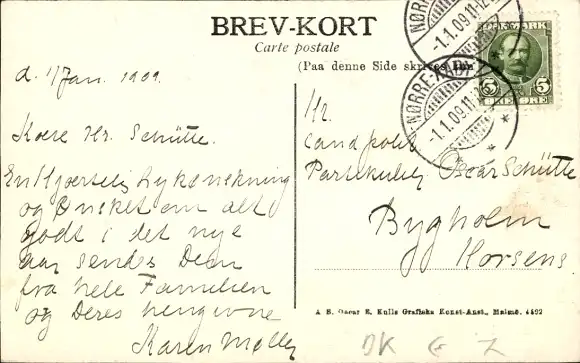 BREV-KORT
Carte postale
(Paa denne Side skrives kun
NØRRE-AABY
-1.1.09.11-12
DANMARK
5 5
ØRE ØRE
NØRRE-AABY
-1.1.09.11-12
d. 1/Jan. 1909.
Kære Hr. Schütte.
En Hjertelig Lykønskning
og Ønsket om alt
godt i det nye
Aar sendes Dem
fra hele Familien
og Deres hengivne
Karen Møller
Hr.
cand polit
Oscar Schütte
Bygholm
Horsens
A. B. Oscar E. Kulls Grafiska Konst-Anst., Malmö. 4492
DK G Z